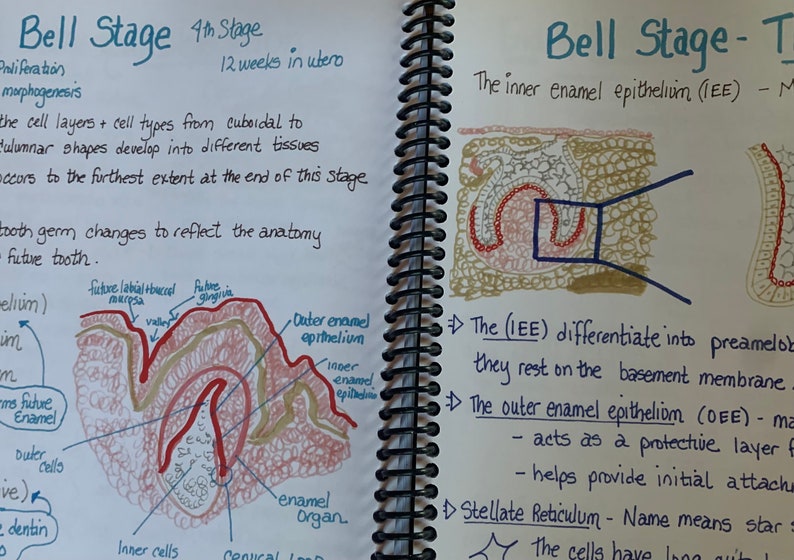 Bell Stage 4th Stage
12 weeks in utero
Proliferation
morphogenesis
the cell layers + cell types from cuboidal to
columnar shapes develop into different tissues
occurs to the furthest extent at the end of this stage
tooth germ changes to reflect the anatomy
future tooth.
future labial + buccal
mucosa
valley
Future
gingiva
Outer enamel
epithelium
inner
enamel
epithelium
future
Enamel
outer
cells
dentin
enamel
Organ
Inner cells
Cervical Loop
Bell Stage - T
The inner enamel epithelium (IEE) - M
The (IEE) differentiate into preamelob
they rest on the basement membrane.
The outer enamel epithelium (OEE) - ma
- acts as a protective layer f
- helps provide initial attachm
Stellate Reticulum - Name means star s
The cells have long